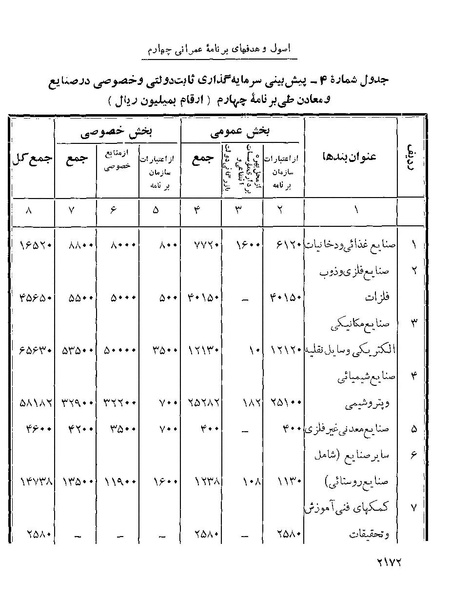 اسول و هدفهای برنامهٔ عمرانی چهارم
جدول شمارهٔ ۴ــ پیش‌بینی سرمایه‌گذاری ثابت‌دولتی وخصوصی درصنایع
ومعادن طی‌برنامهٔ چهارم ( ارقام بمیلیون ریال )
ردیف عنوان‌بندها بخش عمومی بخش خصوصی جمع‌کل
از اعتبارات سازمان برنامه جمع از اعتبارات سازمان برنامه ازمنابع خصوصی جمع
۱ ۲ ۳ ۴ ۵ ۶ ۷ ۸
۱ صنایع غذائی‌ودخانیات ۶۱۲۰ ۱۶۰۰ ۷۷۲۰ ۸۰۰ ۸۰۰۰ ۸۸۰۰ ۱۶۵۲۰
۲ صنایع‌فلزی‌وذوب
فلزات ۴۰۱۵۰ – ۴۰۱۵۰ ۵۰۰ ۵۰۰۰ ۵۵۰۰ ۴۵۶۵۰
۳ صنایع‌مکانیکی
الکتریکی وسایل نقلیه ۱۲۱۲۰ ۱۰ ۱۲۱۳۰ ۳۵۰۰ ۵۰۰۰۰ ۵۳۵۰۰ ۶۵۶۳۰
۴ صنایع شیمیائی
وپتروشیمی ۲۵۱۰۰ ۱۸۲ ۲۵۲۸۲ ۷۰۰ ۳۲۲۰۰ ۳۲۹۰۰ ۵۸۱۸۲
۵ صنایع‌معدنی‌غیرفلزی ۴۰۰ – ۴۰۰ ۷۰۰ ۳۵۰۰ ۴۲۰۰ ۴۶۰۰
۶ سایرصنایع (شامل
صنایع‌روستائی) ۱۱۳۰ ۱۰۸ ۱۲۳۸ ۱۶۰۰ ۱۱۹۰۰ ۱۳۵۰۰ ۱۴۷۳۸
۷ کمکهای فنی‌آموزش
وتحقیقات ۲۵۸۰ – ۲۵۸۰ – – – ۲۵۸۰
۲۱۷۲